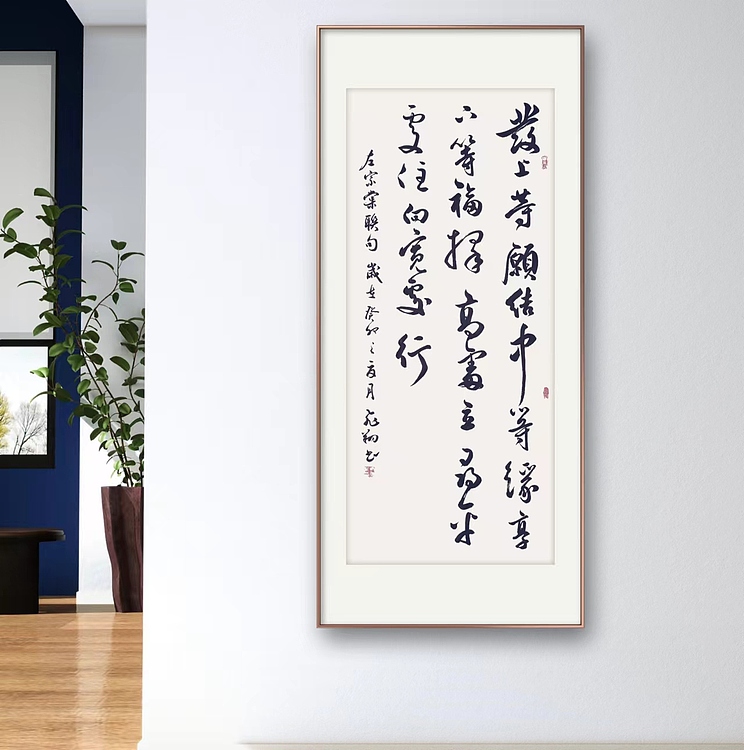 發上等願結中等緣享
下等福擇高處立尋平
處住向寬處行
左宗棠聯句 歲在癸卯之夏月 飛翔书